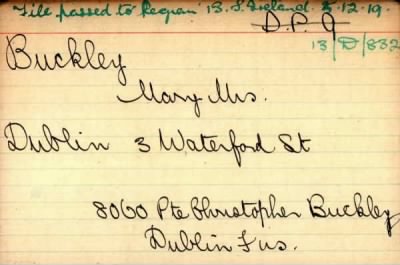 File passed to Regan 13. S. Ireland. 3.12.19.
D.P. 9
13/D/832
Buckley
Mary Mrs.
Dublin 3 Waterford St
8060 Pte Christopher Buckley
Dublin Fus.